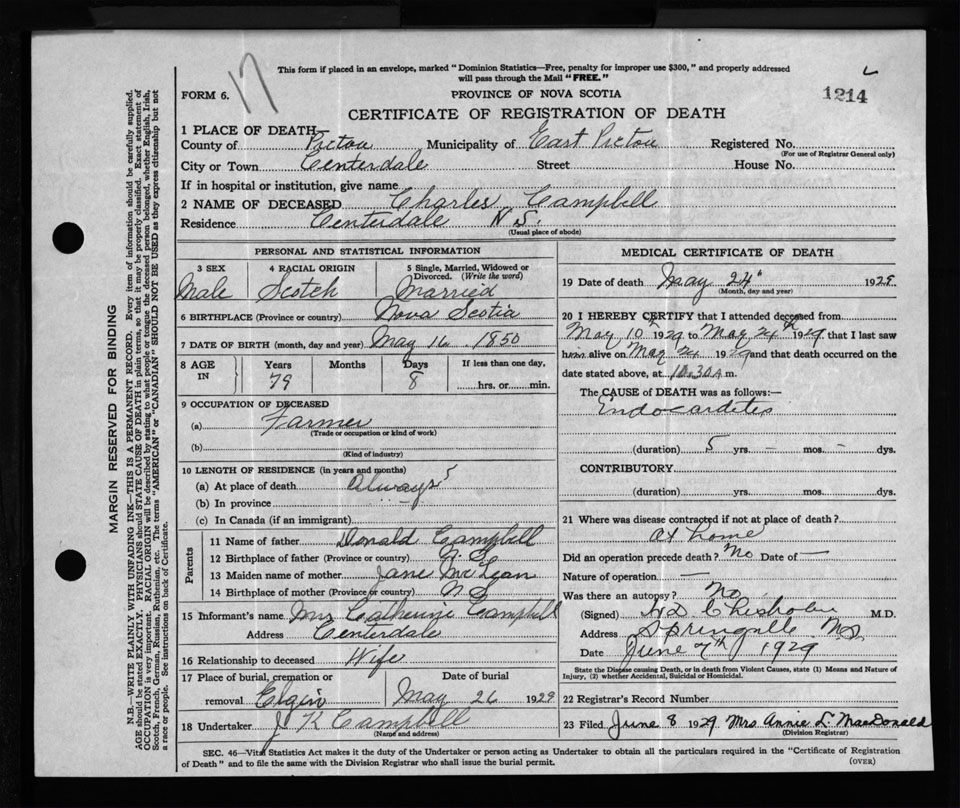 17
This form if placed in an envelope, marked "Dominion Statistics—Free, penalty for improper use $300," and properly addressed
will pass through the Mail "FREE."
FORM 6.
PROVINCE OF NOVA SCOTIA
1214
CERTIFICATE OF REGISTRATION OF DEATH
1 PLACE OF DEATH—
County of Pictou Municipality of East Pictou Registered No.
(For use of Registrar General only)
City or Town Centerdale Street House No.
If in hospital or institution, give name
2 NAME OF DECEASED Charles Campbell
Residence Centerdale N S.
(Usual place of abode)
PERSONAL AND STATISTICAL INFORMATION
3 SEX 4 RACIAL ORIGIN 5 Single, Married, Widowed or Divorced. (Write the word)
Male Scotch Married
6 BIRTHPLACE (Province or country) Nova Scotia
7 DATE OF BIRTH (month, day and year) May 16 1850
8 AGE IN Years Months Days If less than one day,
79 8 hrs. or min.
9 OCCUPATION OF DECEASED
(a) Farmer
(Trade or occupation or kind of work)
(b)
(Kind of industry)
10 LENGTH OF RESIDENCE (in years and months)
(a) At place of death always
(b) In province
(c) In Canada (if an immigrant)
Parents
11 Name of father Donald Campbell
12 Birthplace of father (Province or country) N. S
13 Maiden name of mother Jane McLean
14 Birthplace of mother (Province or country) N S
15 Informant's name Mrs Catherine Campbell
Address Centerdale
16 Relationship to deceased Wife
17 Place of burial, cremation or removal Elgin
Date of burial
May 26 1929
18 Undertaker J K Campbell
(Name and address)
MEDICAL CERTIFICATE OF DEATH
19 Date of death May 24" 1929
(Month, day and year)
20 I HEREBY CERTIFY that I attended deceased from
May 10th 1929 to May 24th 1929 that I last saw
him alive on May 24 1929 and that death occurred on the
date stated above, at 10.30 A m.
The CAUSE of DEATH was as follows:—
Endocarditis
(duration) 5 yrs. — mos. — dys.
CONTRIBUTORY
(duration) yrs. mos. dys.
21 Where was disease contracted if not at place of death?
at home
Did an operation precede death? No Date of —
Nature of operation —
Was there an autopsy? No
(Signed) Chisholm M.D.
Address Springville N.S.
Date June 7th 1929
State the Disease causing Death, or in death from Violent Causes, state (1) Means and Nature of
Injury, (2) whether Accidental, Suicidal or Homicidal.
22 Registrar's Record Number
23 Filed June 8 1929 Mrs. Annie L. MacDonald
(Division Registrar)
SEC. 46—Vital Statistics Act makes it the duty of the Undertaker or person acting as Undertaker to obtain all the particulars required in the "Certificate of Registration
of Death" and to file the same with the Division Registrar who shall issue the burial permit.
(OVER)
MARGIN RESERVED FOR BINDING
N.B.—WRITE PLAINLY WITH UNFADING INK—THIS IS A PERMANENT RECORD. Every item of information should be carefully supplied.
AGE should be stated EXACTLY. PHYSICIANS should STATE CAUSE OF DEATH in plain terms, so that it may be properly classified. Exact statement of
OCCUPATION is very important. RACIAL ORIGIN will be described by stating to what people or tongue the deceased person belonged, whether English, Irish,
Scotch, French, German, Russian, Ruthenian, etc. The terms "AMERICAN" or "CANADIAN" SHOULD NOT BE USED as they express citizenship but not
a race or people. See instructions on back of Certificate.